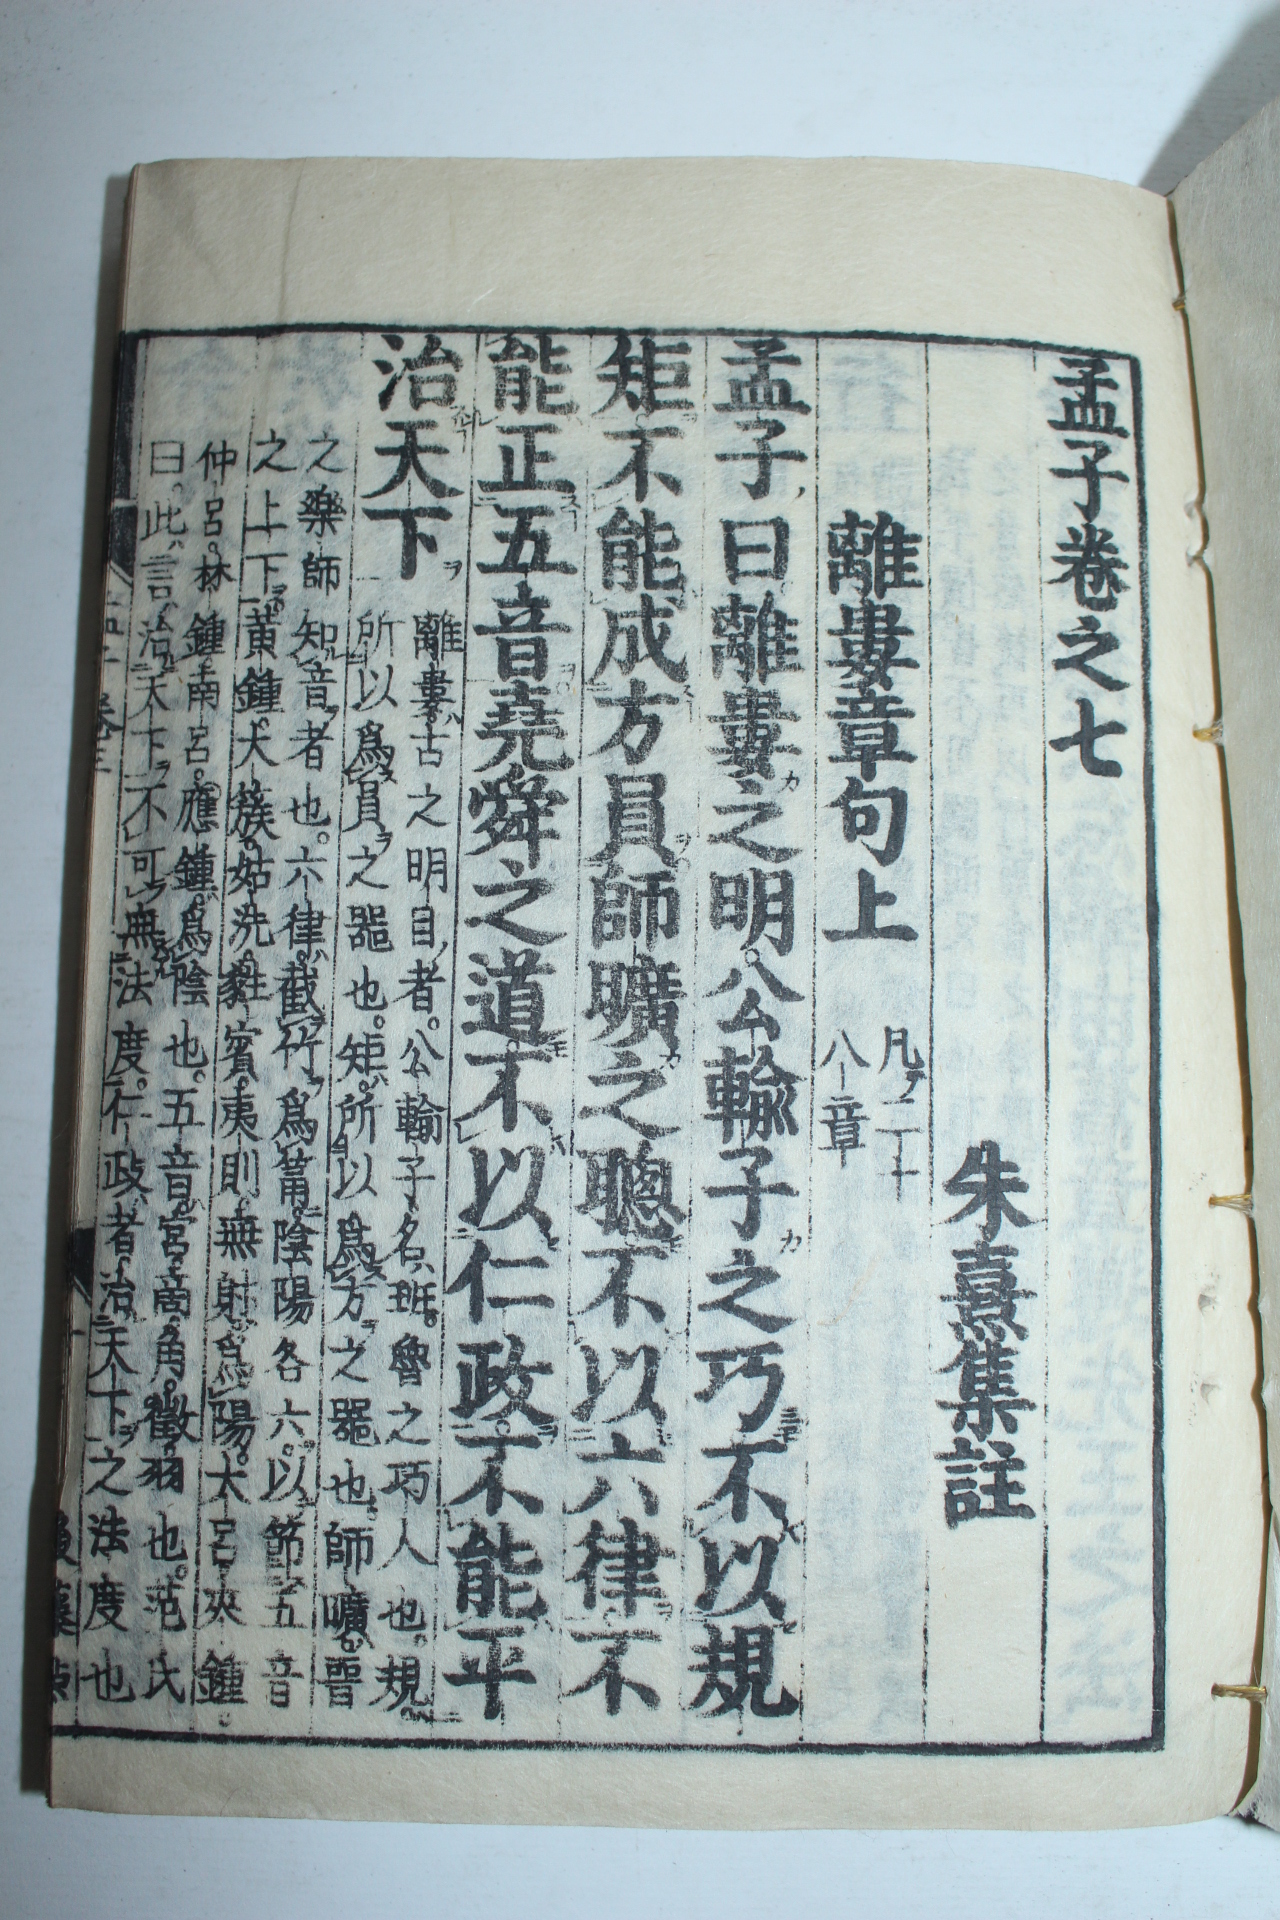 孟子卷之七
朱熹集註
離婁章句上
凡二十
八章
孟子曰離婁之明。公輸子之巧不以規
矩不能成方員師曠之聰不以六律不
能正五音堯舜之道不以仁政。不能平
治天下
離婁古之明目者。公輸子名班。魯之巧人也。規。
所以爲員之器也。矩。所以爲方之器也。師曠。晉
之樂師知音者也。六律。截竹爲筩。陰陽各六。以節五音
之上下。黃鍾。大簇。姑洗。蕤賓。夷則。無射。爲陽。大呂。夾鍾。
仲呂。林鍾。南呂。應鍾。爲陰也。五音。宮。商。角。徵。羽也。范氏
曰。此言治天下不可無法度。仁政者。治天下之法度也